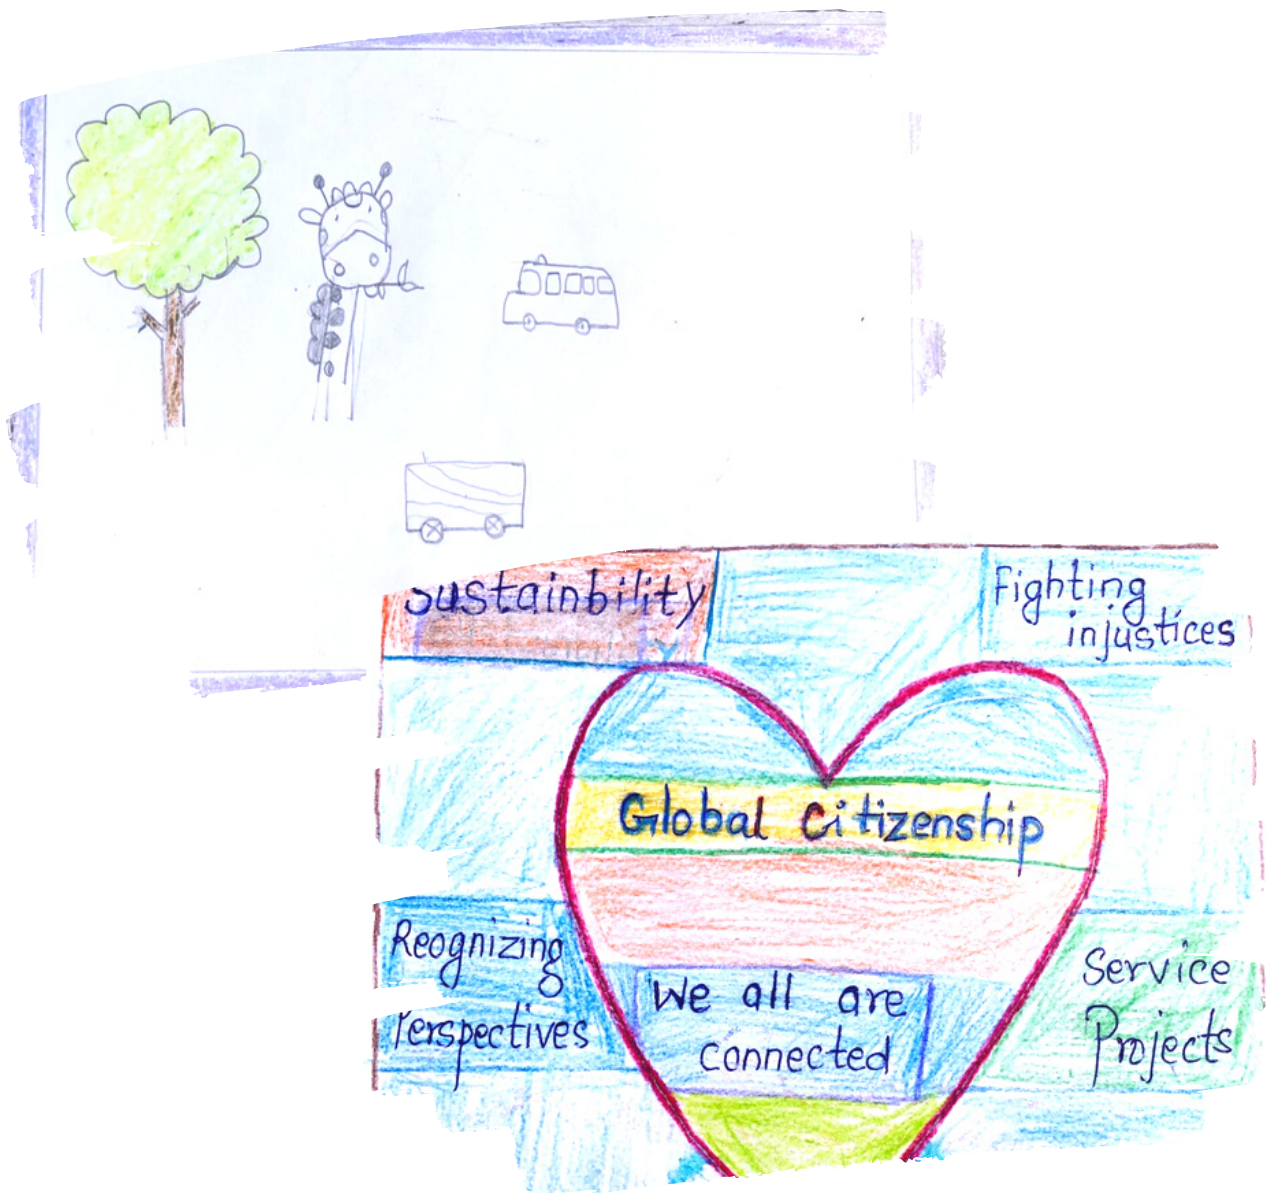 Sustainbility
Fighting
injustices
Global Citizenship
Reognizing
Perspectives
We all are
connected
Service
Projects